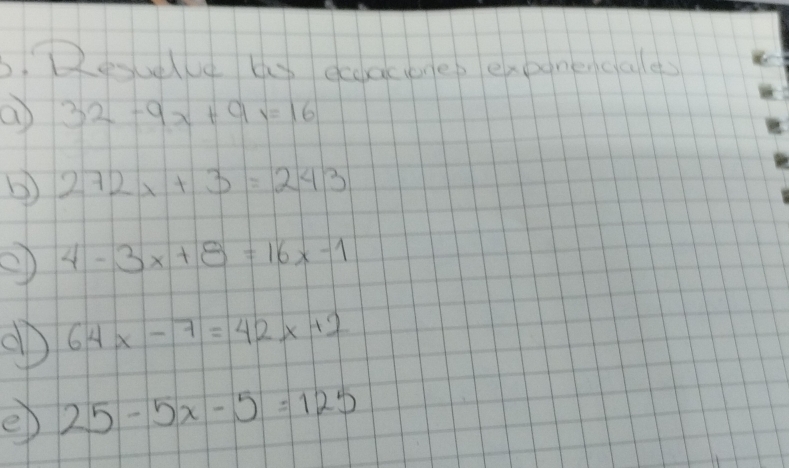 3. Resuelve las ecuaciones exponenciales
a) 32 - 9x + 9 = 16
b) 272x + 3 = 243
c) 4 - 3x + 8 = 16x - 1
d) 64x - 7 = 42x + 2
e) 25 - 5x - 5 = 125